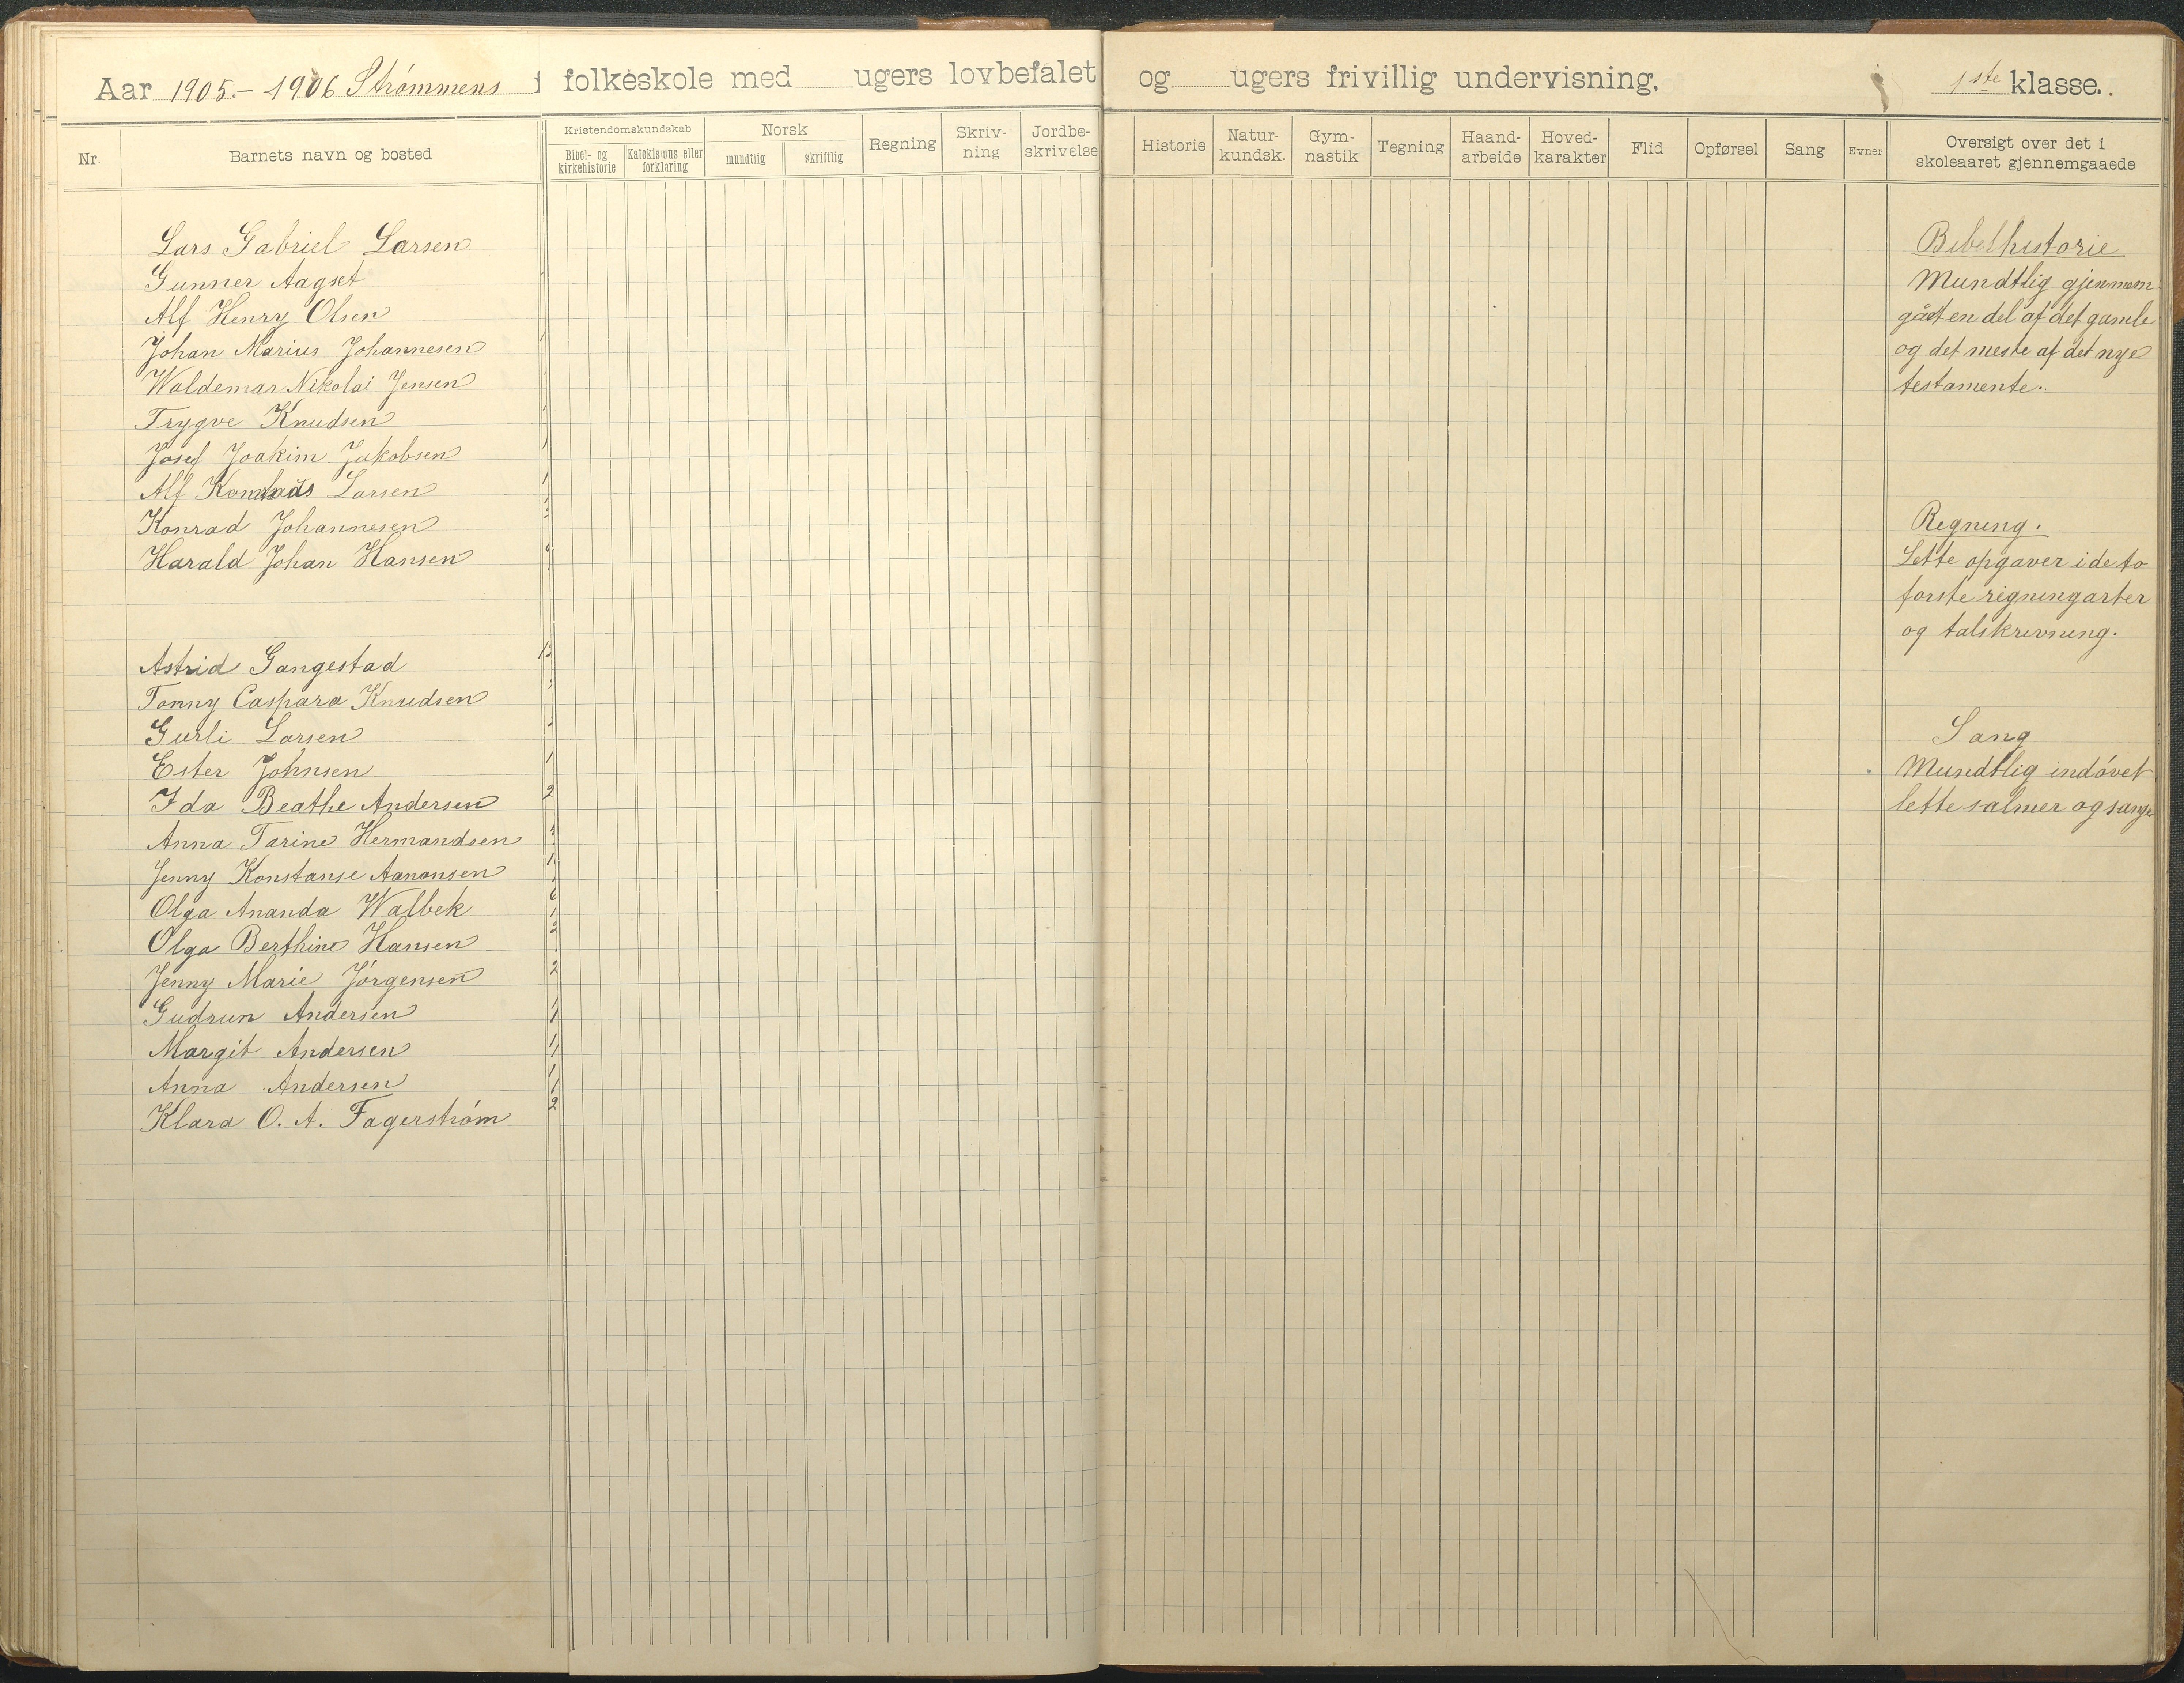 Aar 1905.- 1906 Strømmens folkeskole med ugers lovbefalet og ugers frivillig undervisning. 1ste klasse.
Nr.
Barnets navn og bosted
Kristendomskundskab
Bibel- og kirkehistorie
Katekismus eller forklaring
Norsk
mundtlig
skriftlig
Regning
Skriv-
ning
Jordbe-
skrivelse
Historie
Natur-
kundsk.
Gym-
nastik
Tegning
Haand-
arbeide
Hoved-
karakter
Flid
Opførsel
Sang
Evner
Oversigt over det i
skoleaaret gjennemgaaede
Lars Gabriel Larsen
Gunner Aagset
Alf Henry Olsen
Johan Marius Johannesen
Waldemar Nikolai Jensen
Trygve Knudsen
Josef Joakim Jakobsen
Alf Larsen
Konrad Johannesen
Harald Johan Hansen
Astrid Gangestad
Tonny Caspara Knudsen
Gurli Larsen
Ester Johnsen
Ida Beathe Andersen
Anna Tarine Hermandsen
Jenny Konstanse Aanonsen
Olga Ananda Walbek
Olga Berthine Hansen
Jenny Marie Jørgensen
Gudrun Andersen
Margit Andersen
Anna Andersen
Klara O. A. Fagerstrøm
Bibelhistorie
Mundtlig gjennem
gåt en del af det gamle
og det meste af det nye
testamente.
Regning.
Lette opgaver i de to
første regningarter
og talskrivning.
Sang
Mundtlig indøvet
lette salmer og sange